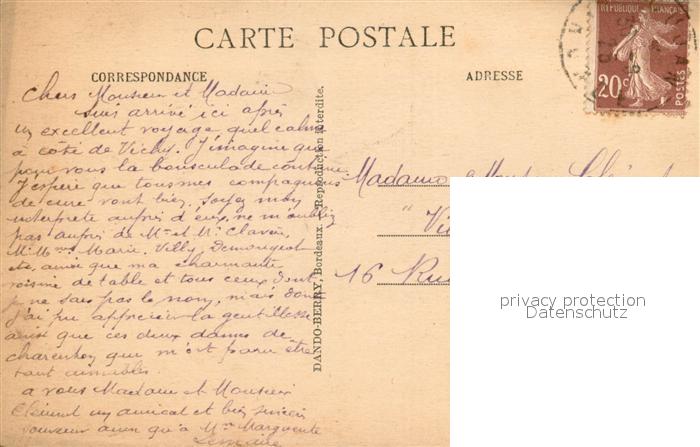 CARTE POSTALE
CORRESPONDANCE
ADRESSE
RÉPUBLIQUE FRANÇAISE
20c
POSTES
Chers Monsieur et Madame
Suis arrivé ici après
un excellent voyage, quel calme
à côté de Vichy. J'imagine que
pour vous la bousculade continue
J'espère que tous mes compagnons
de cure vont bien, soyez mon
interprète auprès d'eux, ne m'oubliez
pas auprès de Me et Mr
Mr Mme Marie, Villy, Demongeot
etc, ainsi que ma charmante
voisine de table et tous ceux dont
je ne sais pas le nom, mais dont
j'ai pu apprécier la gentillesse
ainsi que ces deux dames de
charenton qui m'ont paru être
tant aimables.
a vous Madame et Monsieur
Clément un amical et bien sincère
souvenir ainsi qu'à Mme Marguerite
DANDO-BERRY, Bordeaux. Reproduction interdite.
Madame Monsieur
16 Rue
privacy protection
Datenschutz